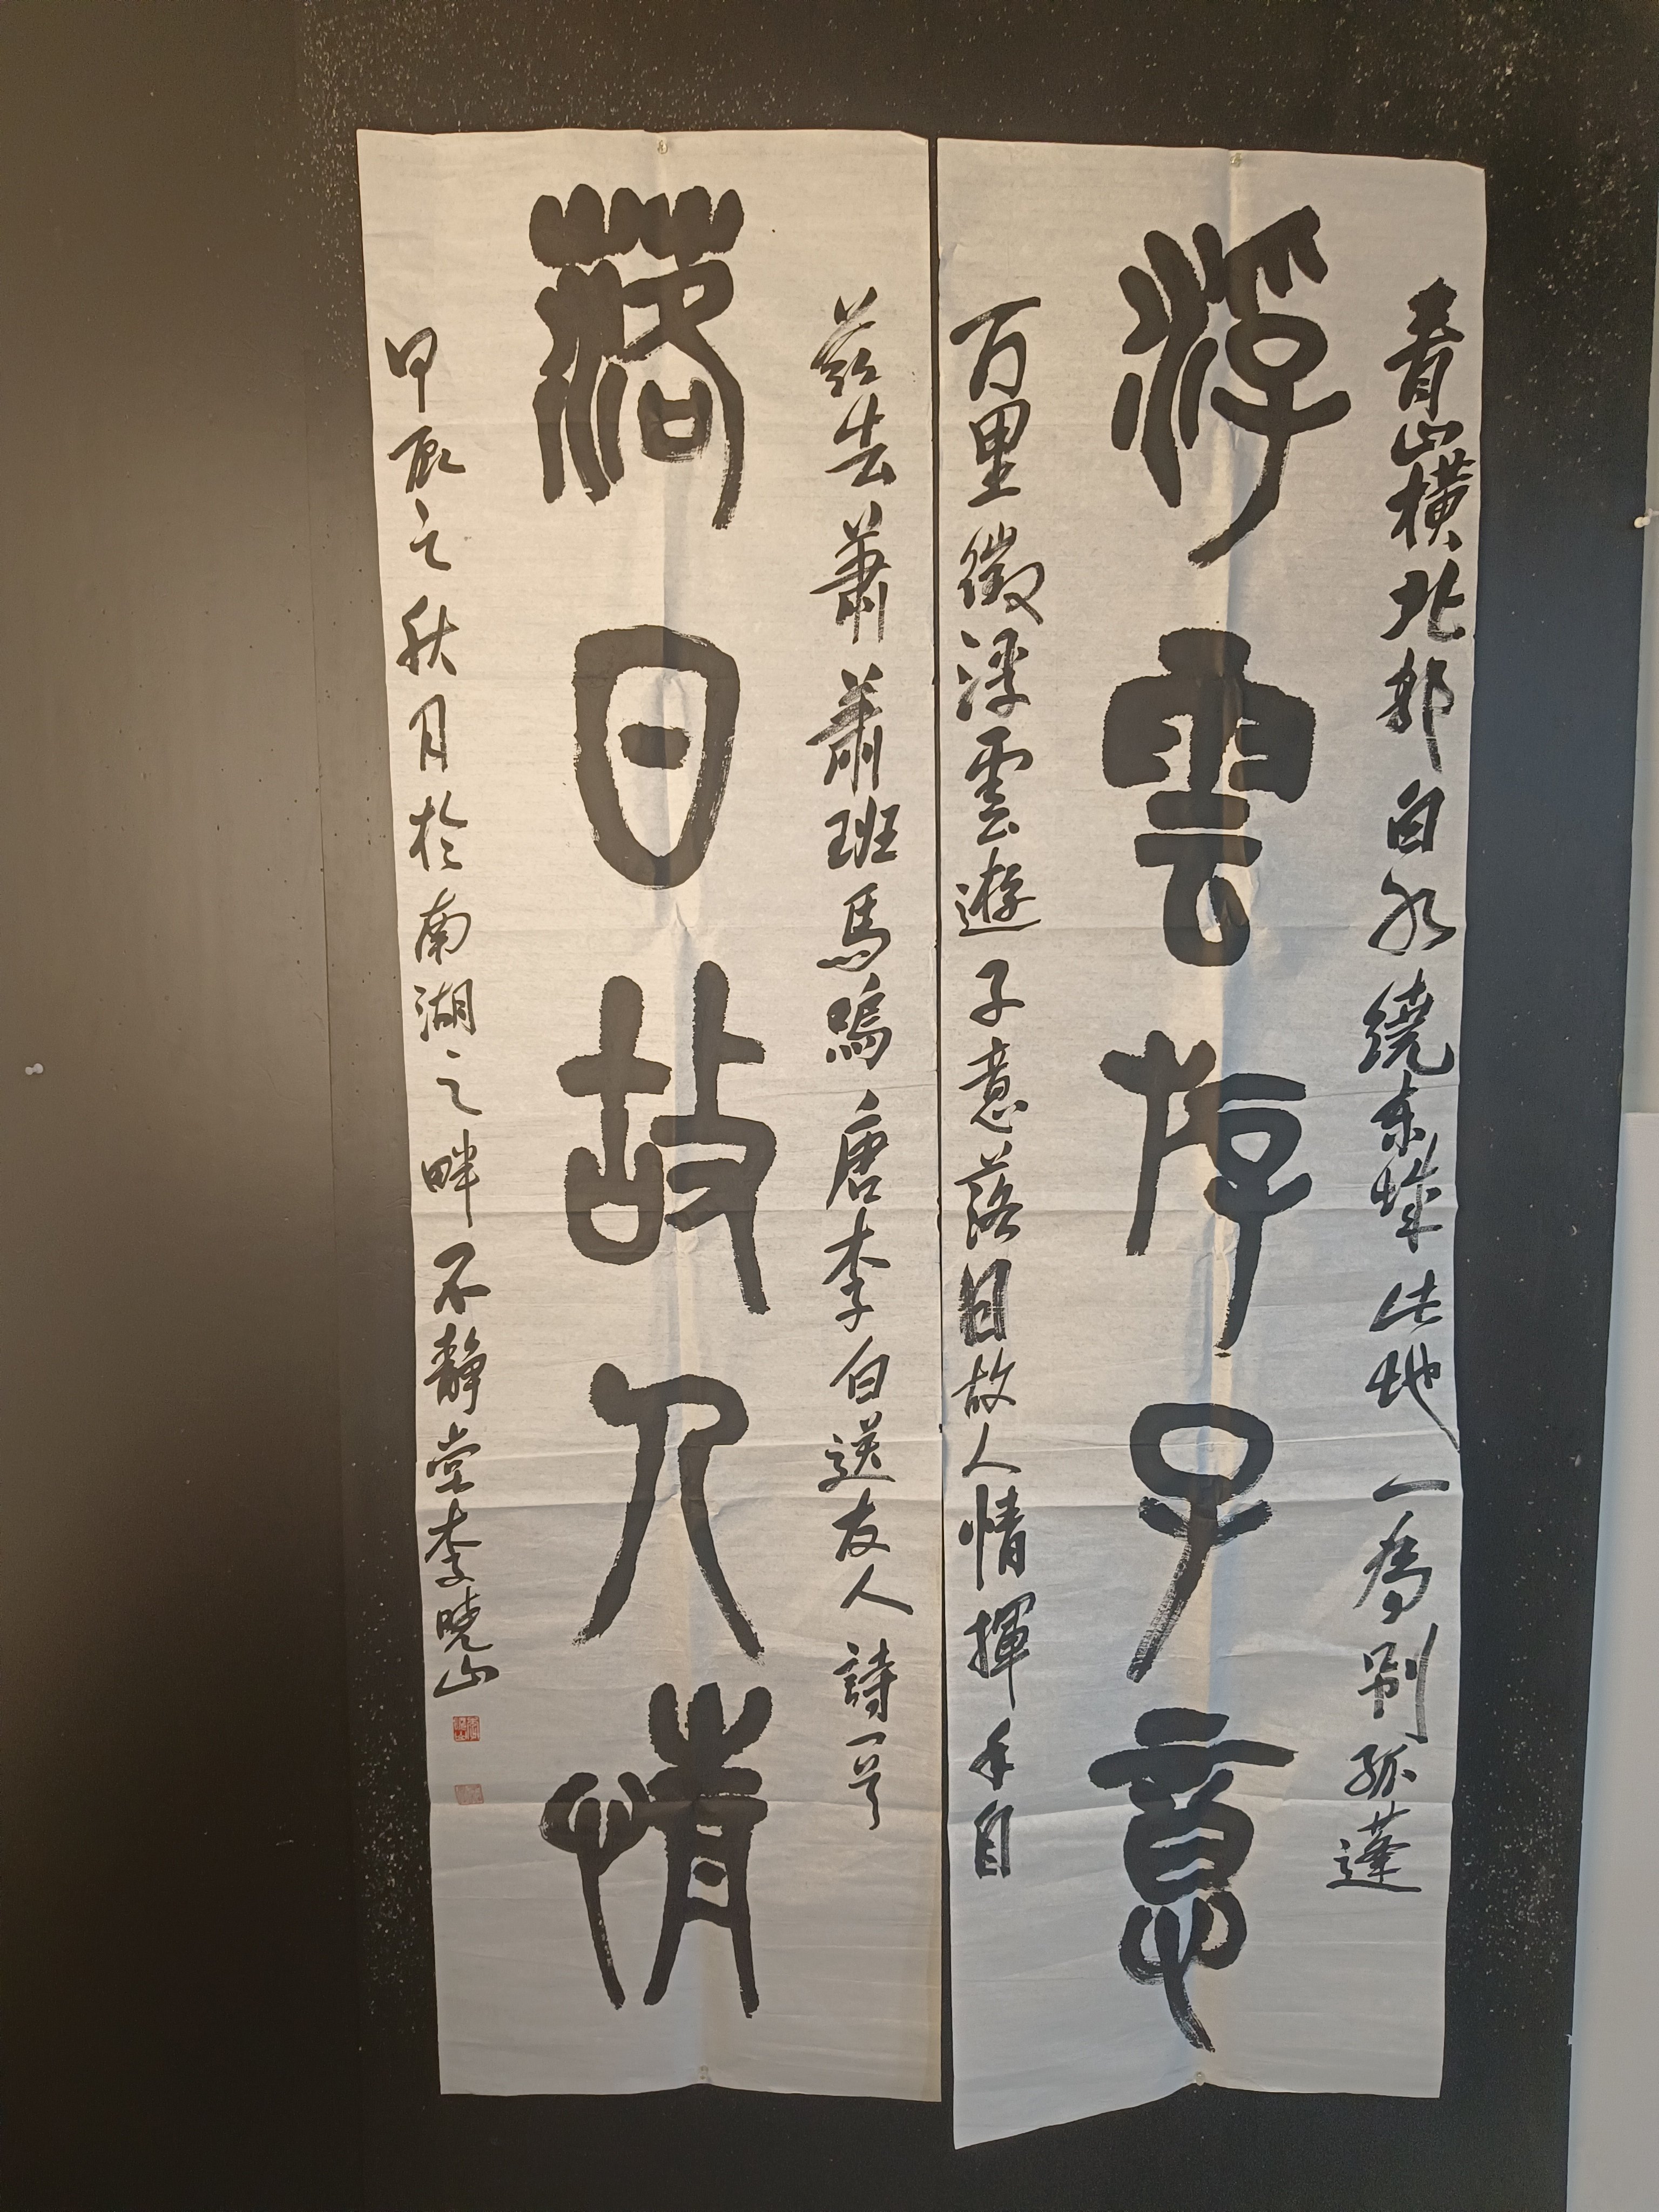 青山橫北郭白水绕东城此地一為別孤蓬
浮雲斿子意
万里徵浮雲遊子意落日故人情揮手自
茲去蕭蕭班馬鳴唐李白送友人詩一首
落日故人情
甲辰之秋月於南湖之畔不靜堂李晓山